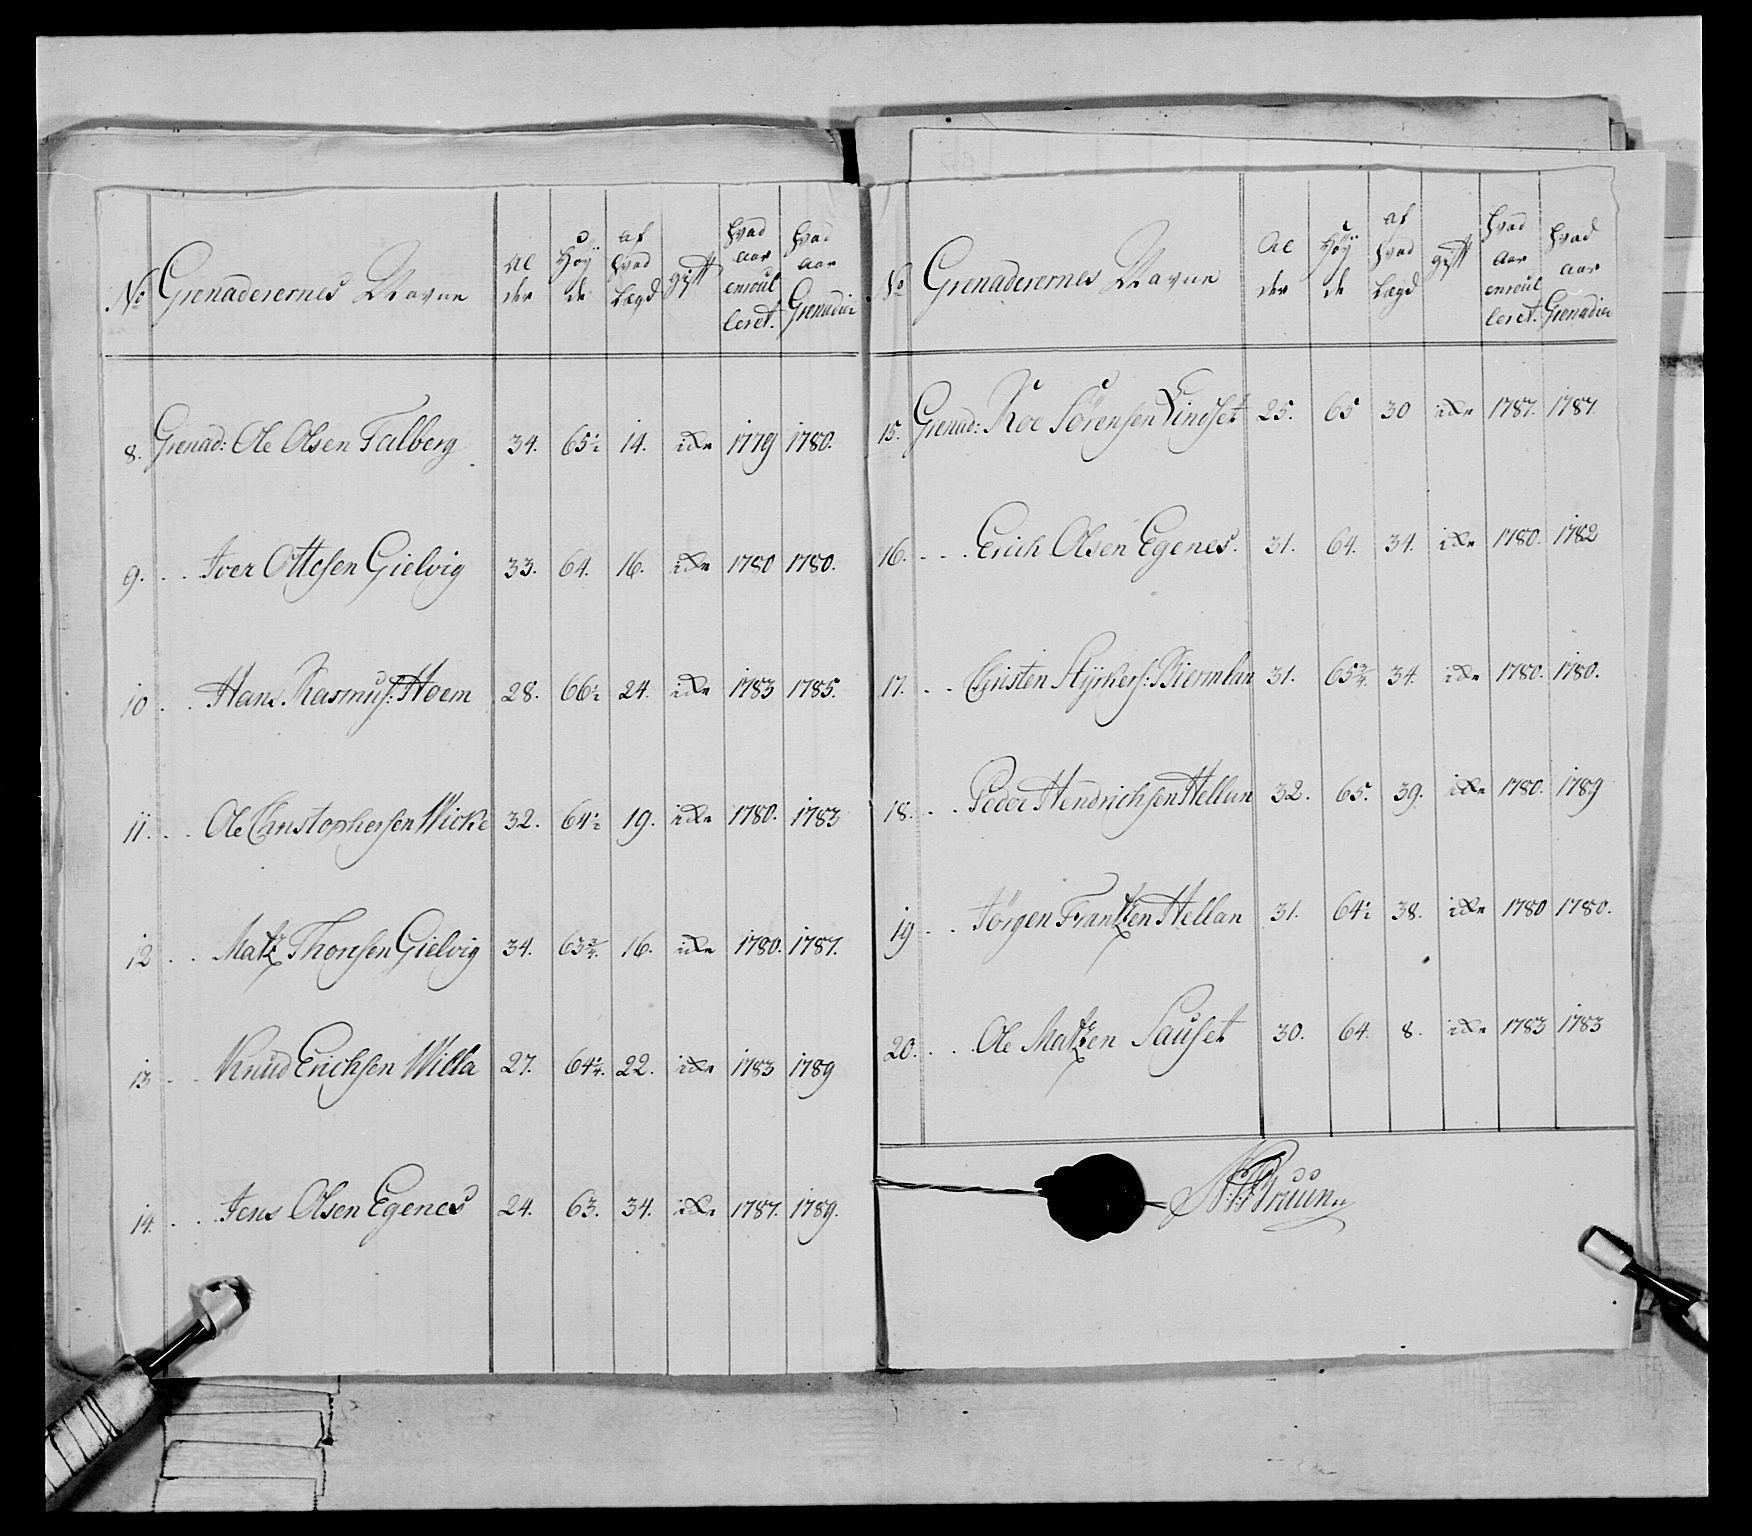 No Grenaderernes Navne Al der Høy de af hvad Lægd gift hvad aar enroul leret. hvad aar Grenadeer
8. Grenad: Ole Olsen Talberg 34. 65½ 14. ikke 1779 1780.
9. . . Iver Ottesen Gielvig 33. 64. 16. ikke 1780 1780.
10 . . Hans Rasmus: Hoem 28. 66½ 24. ikke 1783 1785.
11. . . Ole Christophersen Wicke 32. 64½ 19. ikke 1780. 1783
12 . . Matz Thorsen Gielvig 34. 63¾ 16. ikke 1780. 1787.
13 . . Knud Erichsen Willa 27. 64¼ 22. ikke 1783 1789
14. . . Jens Olsen Egenes 24. 63. 34. ikke 1787. 1789.
No Grenaderernes Navne Al der Høy de af hvad Lægd gift hvad aar enroul leret. hvad aar Grenadeer
15. Grenad: Roe Sörensen Lindset 25. 65 30 ikke 1787. 1787.
16. . . Erich Olsen Egenes. 31. 64. 34. ikke 1780. 1782
17. . . Christen Styrkers: Biermlan 31. 65¾ 34. ikke 1780. 1780.
18. . . Peder Hendrichsen Hellan 32. 65. 39. ikke 1780. 1789
19 . . Jörgen Frantzen Hellan 31. 64½ 38. ikke 1780 1780.
20. . . Ole Matzen Sauset 30. 64. 8. ikke 1783 1783
Bruun